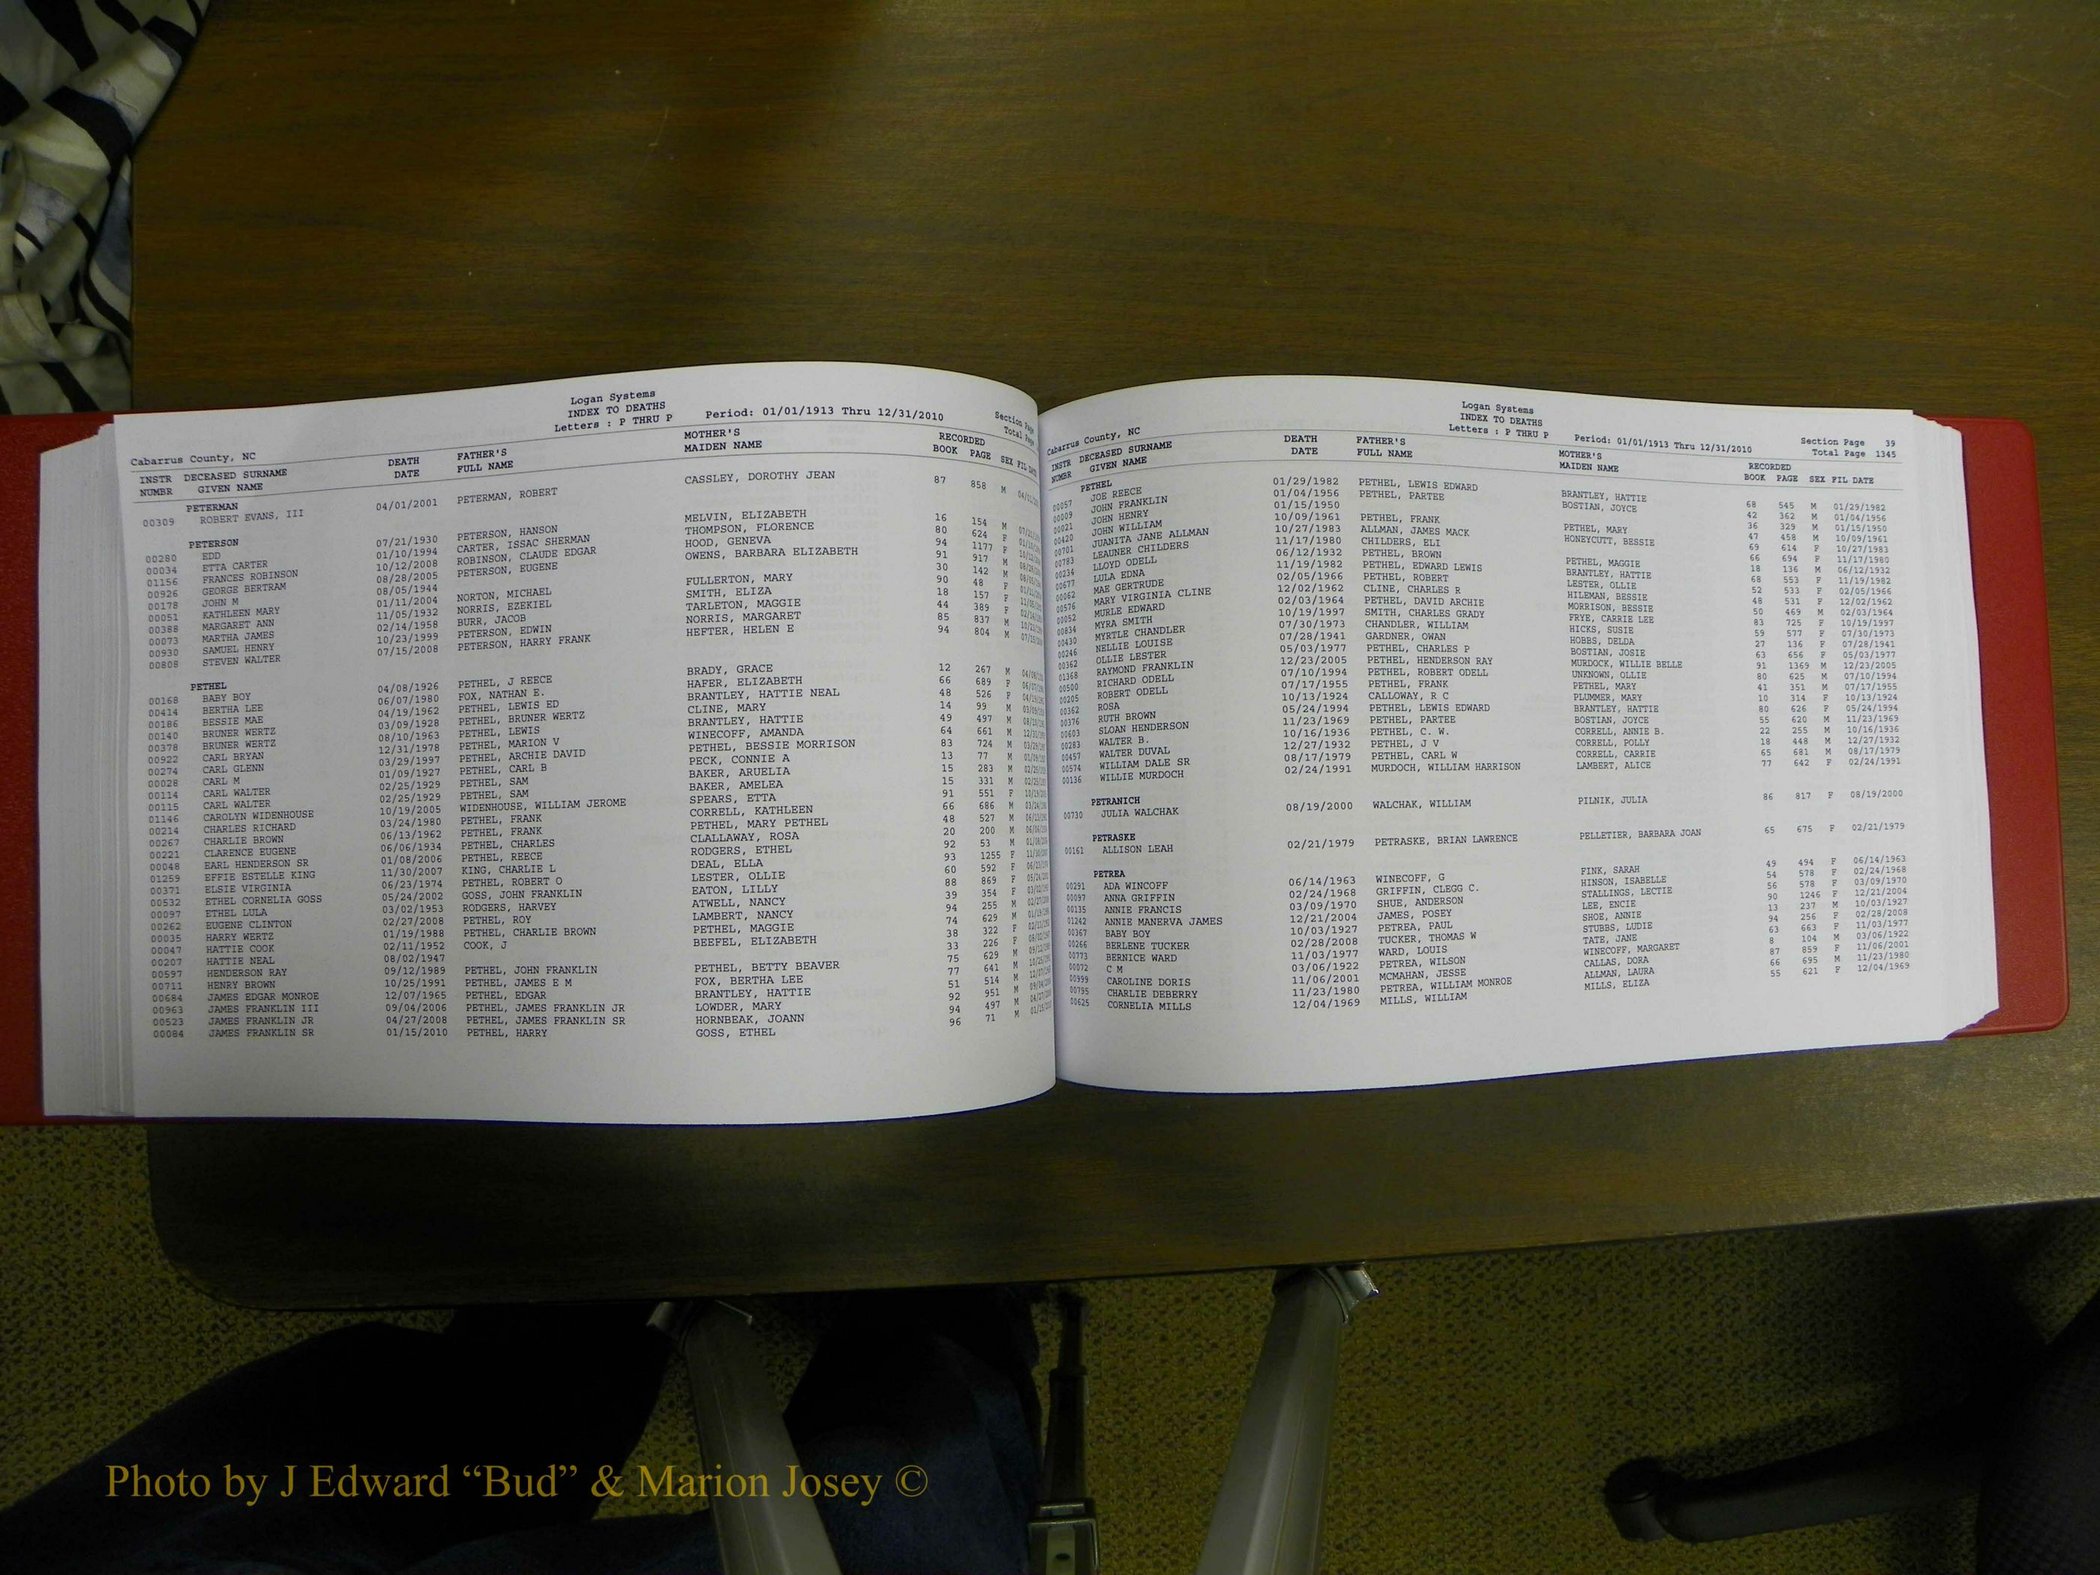 Logan Systems
INDEX TO DEATHS
Letters : P THRU P Period: 01/01/1913 Thru 12/31/2010
Section Page
Total Page
Cabarrus County, NC
INSTR DECEASED SURNAME DEATH FATHER'S MOTHER'S RECORDED
NUMBR GIVEN NAME DATE FULL NAME MAIDEN NAME BOOK PAGE SEX FIL DATE
PETERMAN
00309 ROBERT EVANS, III 04/01/2001 PETERMAN, ROBERT CASSLEY, DOROTHY JEAN 87 858 M
PETERSON
00280 EDD 07/21/1930 PETERSON, HANSON MELVIN, ELIZABETH 16 154 M
00034 ETTA CARTER 01/10/1994 CARTER, ISSAC SHERMAN THOMPSON, FLORENCE 80 624 F
01156 FRANCES ROBINSON 10/12/2008 ROBINSON, CLAUDE EDGAR HOOD, GENEVA 94 1177 F
00926 GEORGE BERTRAM 08/28/2005 PETERSON, EUGENE OWENS, BARBARA ELIZABETH 91 917 M
00178 JOHN M 08/05/1944 30 142 M
00051 KATHLEEN MARY 01/11/2004 NORTON, MICHAEL FULLERTON, MARY 90 48 F
00388 MARGARET ANN 11/05/1932 NORRIS, EZEKIEL SMITH, ELIZA 18 157 F
00073 MARTHA JAMES 02/14/1958 BURR, JACOB TARLETON, MAGGIE 44 389 F
00930 SAMUEL HENRY 10/23/1999 PETERSON, EDWIN NORRIS, MARGARET 85 837 M
00808 STEVEN WALTER 07/15/2008 PETERSON, HARRY FRANK HEFTER, HELEN E 94 804 M
PETHEL
00168 BABY BOY 04/08/1926 PETHEL, J REECE BRADY, GRACE 12 267 M
00414 BERTHA LEE 06/07/1980 FOX, NATHAN E. HAFER, ELIZABETH 66 689 F
00186 BESSIE MAE 04/19/1962 PETHEL, LEWIS ED BRANTLEY, HATTIE NEAL 48 526 F
00140 BRUNER WERTZ 03/09/1928 PETHEL, BRUNER WERTZ CLINE, MARY 14 99 M
00378 BRUNER WERTZ 08/10/1963 PETHEL, LEWIS BRANTLEY, HATTIE 49 497 M
00922 CARL BRYAN 12/31/1978 PETHEL, MARION V WINECOFF, AMANDA 64 661 M
00274 CARL GLENN 03/29/1997 PETHEL, ARCHIE DAVID PETHEL, BESSIE MORRISON 83 724 M
00028 CARL M 01/09/1927 PETHEL, CARL B PECK, CONNIE A 13 77 M
00114 CARL WALTER 02/25/1929 PETHEL, SAM BAKER, ARUELIA 15 283 M
00115 CARL WALTER 02/25/1929 PETHEL, SAM BAKER, AMELEA 15 331 M
01146 CAROLYN WIDENHOUSE 10/19/2005 WIDENHOUSE, WILLIAM JEROME SPEARS, ETTA 91 551 F
00214 CHARLES RICHARD 03/24/1980 PETHEL, FRANK CORRELL, KATHLEEN 66 686 M
00267 CHARLIE BROWN 06/13/1962 PETHEL, FRANK PETHEL, MARY PETHEL 48 527 M
00221 CLARENCE EUGENE 06/06/1934 PETHEL, CHARLES CLALLAWAY, ROSA 20 200 M
00048 EARL HENDERSON SR 01/08/2006 PETHEL, REECE RODGERS, ETHEL 92 53 M
01259 EFFIE ESTELLE KING 11/30/2007 KING, CHARLIE L DEAL, ELLA 93 1255 F
00371 ELSIE VIRGINIA 06/23/1974 PETHEL, ROBERT O LESTER, OLLIE 60 592 F
00532 ETHEL CORNELIA GOSS 05/24/2002 GOSS, JOHN FRANKLIN EATON, LILLY 88 869 F
00097 ETHEL LULA 03/02/1953 RODGERS, HARVEY ATWELL, NANCY 39 354 F
00262 EUGENE CLINTON 02/27/2008 PETHEL, ROY LAMBERT, NANCY 94 255 M
00035 HARRY WERTZ 01/19/1988 PETHEL, CHARLIE BROWN PETHEL, MAGGIE 74 629 M
00047 HATTIE COOK 02/11/1952 COOK, J BEEFEL, ELIZABETH 38 322 F
00207 HATTIE NEAL 08/02/1947 33 226 F
00597 HENDERSON RAY 09/12/1989 PETHEL, JOHN FRANKLIN PETHEL, BETTY BEAVER 75 629 M
00711 HENRY BROWN 10/25/1991 PETHEL, JAMES E M FOX, BERTHA LEE 77 641 M
00684 JAMES EDGAR MONROE 12/07/1965 PETHEL, EDGAR BRANTLEY, HATTIE 51 514 M
00963 JAMES FRANKLIN III 09/04/2006 PETHEL, JAMES FRANKLIN JR LOWDER, MARY 92 951 M
00523 JAMES FRANKLIN JR 04/27/2008 PETHEL, JAMES FRANKLIN SR HORNBEAK, JOANN 94 497 M
00084 JAMES FRANKLIN SR 01/15/2010 PETHEL, HARRY GOSS, ETHEL 96 71 M
Logan Systems
INDEX TO DEATHS
Letters : P THRU P Period: 01/01/1913 Thru 12/31/2010
Section Page 39
Total Page 1345
Cabarrus County, NC
INSTR DECEASED SURNAME DEATH FATHER'S MOTHER'S RECORDED
NUMBR GIVEN NAME DATE FULL NAME MAIDEN NAME BOOK PAGE SEX FIL DATE
PETHEL
00057 JOE REECE 01/29/1982 PETHEL, LEWIS EDWARD BRANTLEY, HATTIE 68 545 M 01/29/1982
00009 JOHN FRANKLIN 01/04/1956 PETHEL, PARTEE BOSTIAN, JOYCE 42 362 M 01/04/1956
00021 JOHN HENRY 01/15/1950 36 329 M 01/15/1950
00420 JOHN WILLIAM 10/09/1961 PETHEL, FRANK PETHEL, MARY 47 458 M 10/09/1961
00701 JUANITA JANE ALLMAN 10/27/1983 ALLMAN, JAMES MACK HONEYCUTT, BESSIE 69 614 F 10/27/1983
00783 LEAUNER CHILDERS 11/17/1980 CHILDERS, ELI 66 694 F 11/17/1980
00234 LLOYD ODELL 06/12/1932 PETHEL, BROWN PETHEL, MAGGIE 18 136 M 06/12/1932
00677 LULA EDNA 11/19/1982 PETHEL, EDWARD LEWIS BRANTLEY, HATTIE 68 553 F 11/19/1982
00062 MAE GERTRUDE 02/05/1966 PETHEL, ROBERT LESTER, OLLIE 52 533 F 02/05/1966
00576 MARY VIRGINIA CLINE 12/02/1962 CLINE, CHARLES R HILEMAN, BESSIE 48 531 F 12/02/1962
00052 MURLE EDWARD 02/03/1964 PETHEL, DAVID ARCHIE MORRISON, BESSIE 50 469 M 02/03/1964
00834 MYRA SMITH 10/19/1997 SMITH, CHARLES GRADY FRYE, CARRIE LEE 83 725 F 10/19/1997
00430 MYRTLE CHANDLER 07/30/1973 CHANDLER, WILLIAM HICKS, SUSIE 59 577 F 07/30/1973
00246 NELLIE LOUISE 07/28/1941 GARDNER, OWAN HOBBS, DELDA 27 136 F 07/28/1941
00362 OLLIE LESTER 05/03/1977 PETHEL, CHARLES P BOSTIAN, JOSIE 63 656 F 05/03/1977
01368 RAYMOND FRANKLIN 12/23/2005 PETHEL, HENDERSON RAY MURDOCK, WILLIE BELLE 91 1369 M 12/23/2005
00500 RICHARD ODELL 07/10/1994 PETHEL, ROBERT ODELL UNKNOWN, OLLIE 80 625 M 07/10/1994
00205 ROBERT ODELL 07/17/1955 PETHEL, FRANK PETHEL, MARY 41 351 M 07/17/1955
00362 ROSA 10/13/1924 CALLOWAY, R C PLUMMER, MARY 10 314 F 10/13/1924
00376 RUTH BROWN 05/24/1994 PETHEL, LEWIS EDWARD BRANTLEY, HATTIE 80 626 F 05/24/1994
00603 SLOAN HENDERSON 11/23/1969 PETHEL, PARTEE BOSTIAN, JOYCE 55 620 M 11/23/1969
00283 WALTER B. 10/16/1936 PETHEL, C. W. CORRELL, ANNIE B. 22 255 M 10/16/1936
00457 WALTER DUVAL 12/27/1932 PETHEL, J V CORRELL, POLLY 18 448 M 12/27/1932
00574 WILLIAM DALE SR 08/17/1979 PETHEL, CARL W CORRELL, CARRIE 65 681 M 08/17/1979
00136 WILLIE MURDOCH 02/24/1991 MURDOCH, WILLIAM HARRISON LAMBERT, ALICE 77 642 F 02/24/1991
PETRANICH
00730 JULIA WALCHAK 08/19/2000 WALCHAK, WILLIAM PILNIK, JULIA 86 817 F 08/19/2000
PETRASKE
00161 ALLISON LEAH 02/21/1979 PETRASKE, BRIAN LAWRENCE PELLETIER, BARBARA JOAN 65 675 F 02/21/1979
PETREA
00291 ADA WINCOFF 06/14/1963 WINECOFF, G FINK, SARAH 49 494 F 06/14/1963
00097 ANNA GRIFFIN 02/24/1968 GRIFFIN, CLEGG C. HINSON, ISABELLE 54 578 F 02/24/1968
00135 ANNIE FRANCIS 03/09/1970 SHUE, ANDERSON STALLINGS, LECTIE 56 578 F 03/09/1970
01242 ANNIE MANERVA JAMES 12/21/2004 JAMES, POSEY LEE, ENCIE 90 1246 F 12/21/2004
00367 BABY BOY 10/03/1927 PETREA, PAUL SHOE, ANNIE 13 237 M 10/03/1927
00266 BERLENE TUCKER 02/28/2008 TUCKER, THOMAS W STUBBS, LUDIE 94 256 F 02/28/2008
00773 BERNICE WARD 11/03/1977 WARD, LOUIS TATE, JANE 63 663 F 11/03/1977
00072 C M 03/06/1922 PETREA, WILSON WINECOFF, MARGARET 8 104 M 03/06/1922
00999 CAROLINE DORIS 11/06/2001 MCMAHAN, JESSE CALLAS, DORA 87 859 F 11/06/2001
00795 CHARLIE DEBERRY 11/23/1980 PETREA, WILLIAM MONROE ALLMAN, LAURA 66 695 M 11/23/1980
00625 CORNELIA MILLS 12/04/1969 MILLS, WILLIAM MILLS, ELIZA 55 621 F 12/04/1969
Photo by J Edward “Bud” & Marion Josey ©